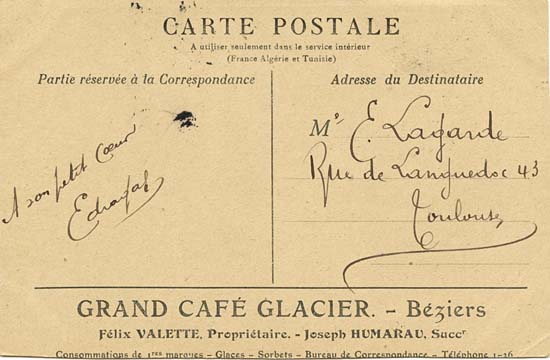 CARTE POSTALE
A utiliser seulement dans le service intérieur
(France Algérie et Tunisie)
Partie réservée à la Correspondance
Adresse du Destinataire
A son petit Cœur
Me E. Lagarde
Rue de Languedoc 43
Toulouse
GRAND CAFÉ GLACIER. - Béziers
Félix VALETTE, Propriétaire. - Joseph HUMARAU, Succr
Consommations de 1res marques - Glaces - Sorbets - Bureau de Correspondance. - Téléphone 1-16